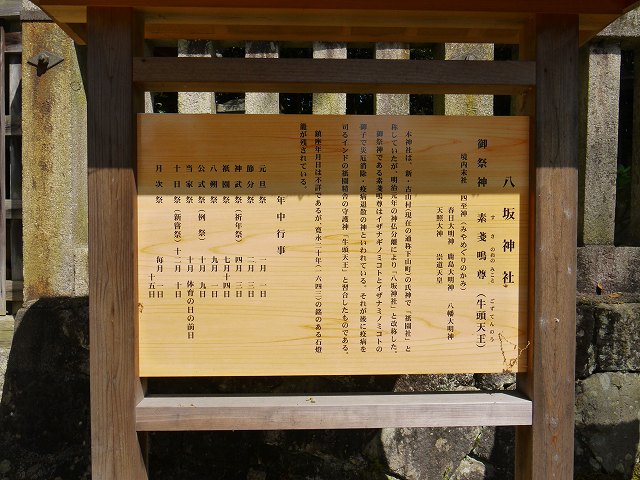 八坂神社
御祭神 素戔嗚尊（牛頭天王）
す さ のおのみこと ごずてんのう
境内末社 四至神（みやめぐりのかみ）
春日大明神 鹿島大明神 八幡大明神
天照大神 崇道天皇
本神社は、新・古山村（現在の通称下山町）の氏神で「祇園社」と
称していたが、明治元年の神仏分離により「八坂神社」と改称した。
御祭神である素戔嗚尊はイザナギノミコトとイザナミノミコトの
御子で災厄消除・疫病退散の神といわれている。それが後に疫病を
司るインドの祇園精舎の守護神「牛頭天王」と習合したものである。
鎮座年月日は不詳であるが、寛永二十年（一六四三）の銘のある石燈
籠が残されている。
年中行事
元旦祭 一月一日
節分祭 二月三日
神武祭（祈年祭） 四月三日
祇園祭 七月十四日
八朔祭 九月一日
公式祭（例祭） 十月九日
当家祭 十月 体育の日の前日
十日祭（新嘗祭） 十二月十日
月次祭 毎月 一日
十五日